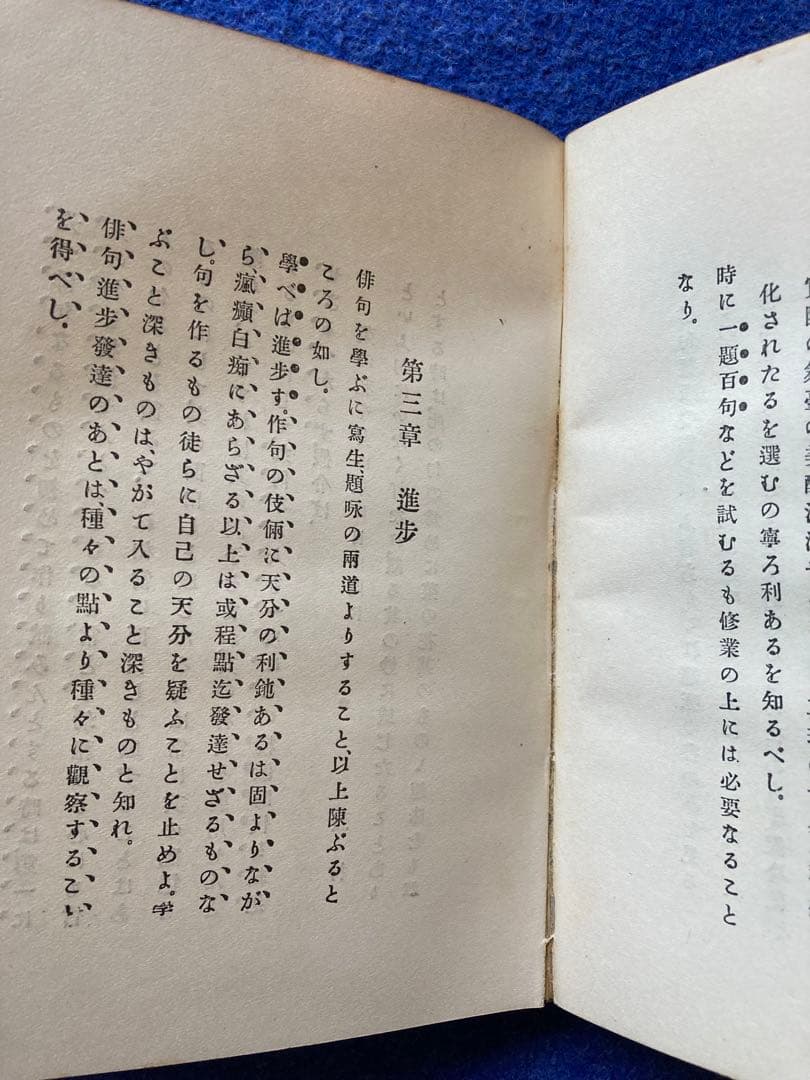 化されたるを選むの寧ろ利あるを知るべし。
時に一題百句などを試むるも修業の上には必要なること
なり。
第三章 進步
俳句を學ぶに寫生、題咏の兩道よりすること、以上陳ぶると
ころの如し。
學べば進步す。作句の伎倆に天分の利鈍あるは固よりなが
ら、瘋癲白痴にあらざる以上は或程點迄發達せざるものな
し。句を作るもの徒らに自己の天分を疑ふことを止めよ。学
ぶこと深きものは、やがて入ること深きものと知れ。
俳句進步發達のあとは、種々の點より種々に觀察すること
を得べし。